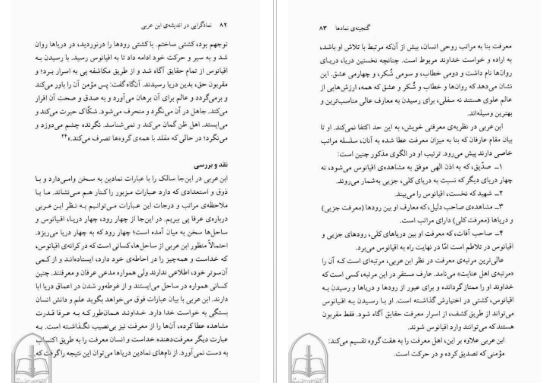 ۸۲ نمادگرایی در اندیشه‌ی ابن عربی
توجهم بود، کشتی ساختم. با کشتی رودها را درنوردید، در دریاها روان
شد و به سیر و حرکت خود ادامه داد تا به اقیانوس رسید. با رسیدن به
اقیانوس از تمام حقایق آگاه شد و از طریق مکاشفه پی به اسرار برد؛ و
مقربون حق، بدین دریا رسیدند. آنگاه گفت: پس مؤمن آن را باور می‌کند
و برمی‌گردد و عالم برای آن برهان می‌آورد و به صدق و صحت آن اقرار
می‌کند. جاهل در آن می‌نگرد و منحرف می‌شود. شکّاک حیرت می‌کند و
می‌ایستد. اهل ظن گمان می‌کند و نمی‌شناسد. نگرنده چشم می‌دوزد و
می‌نگرد؛ در حالی که مقلد با همه‌ی گروه‌ها تصرف می‌کند.»
نقد و بررسی
ابن عربی در این‌جا سالک را با عبارات نمادین به سخن وامی‌دارد و با
ذوق و استعدادی که دارد عبارات مزبور را کنار هم می‌نشاند. اما با
ملاحظه‌ی مراتب و درجات این عبارات می‌توانیم به نظر ابن عربی
درباره‌ی عرفا پی ببریم. در این‌جا از چهار رود، چهار دریا، اقیانوس و
ساحل‌ها سخن به میان آمده است؛ چهار رود که به چهار دریا می‌ریزد.
احتمالاً منظور ابن عربی از ساحل‌ها، کسانی است که در کرانه‌ی اقیانوس،
که خداست و همه‌چیز را در احاطه‌ی خود دارد، ایستاده‌اند و از کمی
آن‌سوتر خود، اطلاعی ندارند ولی همواره مدعی عرفان و معرفتند. چنین
کسانی همواره در ساحل می‌ایستند و از غوطه‌ور شدن در اعماق دریا ابا
می‌ورزند. ابن عربی با بیان عبارات فوق می‌خواهد بگوید علم و دانش انسان
بستگی به خواست خدا دارد. خداوند همان‌طور که به عرفا قدرت
مشاهده عطا کرده، آن‌ها را از معرفت نیز بی‌نصیب نگذاشته است. به
عبارت دیگر معرفت‌دهنده خداست و معرفت را به طریق اکتساب
به دست نمی‌آورد. از نام‌های نمادین دریاها می‌توان این نتیجه را گرفت که
گنجینه‌ی نمادها ۸۳
معرفت بنا به مراتب روحی انسان، بیش از آن‌که مرتبط با تلاش او باشد،
به اراده و خواست خداوند مربوط است. چنانچه نخستین دریا، دریای
روان‌ها نام داشت و دومی خطاب، و سومی شُکر، و چهارمی عشق. این
نشان می‌دهد که روان‌ها و خطاب و شُکر و عشق که همه، ارزش‌هایی از
عالم علوی هستند نه سفلی، برای رسیدن به معارف عالی مناسب‌ترین و
بهترین وسیله‌اند.
ابن عربی در نظریه‌ی معرفتی خویش، به این حد اکتفا نمی‌کند. او تا
بیان مقام عارفان که بنا به میزان معرفت عطا شده به آنان، سلسله مراتب
خاصی دارند پیش می‌رود. ترتیب او در الگوی مذکور چنین است:
۱ـ صدّیق، که به اذن الهی موفق به مشاهده‌ی اقیانوس می‌شود، نه
چهار دریای دیگر که نسبت به دریای کلی، جزیی به شمار می‌روند.
۲ـ شهید که نخست، اقیانوس را می‌بیند.
۳ـ مشاهده‌ی صاحب دلیل، که معارف او بین رودها (معرفت جزیی)
و دریاها (معرفت کلی) دارای مراتب است.
۴ـ صاحب آفات، که معرفت او بین دریاهای کلی، رودهای جزیی و
اقیانوس در تلاطم است امّا در نهایت راه به اقیانوس می‌برد.
عالی‌ترین مرتبه‌ی معرفت در نظر ابن عربی، مرتبه‌ای است که آن را
«مرتبه‌ی اهل عنایت» می‌نامد. عارف مستقر در این مرتبه، کسی است که
خداوند او را ممتاز گردانده و برای عبور از رودها و دریاها و رسیدن به
اقیانوس، کشتی در اختیارش گذاشته است. او با رسیدن به اقیانوس
می‌تواند از طریق کشف، از اسرار معرفت حقایق آگاه شود. فقط مقربون
هستند که می‌توانند وارد اقیانوس شوند.
ابن عربی علاوه بر این، اهل معرفت را به هفت گروه تقسیم می‌کند:
مؤمنی که تصدیق کرده و در حرکت است.